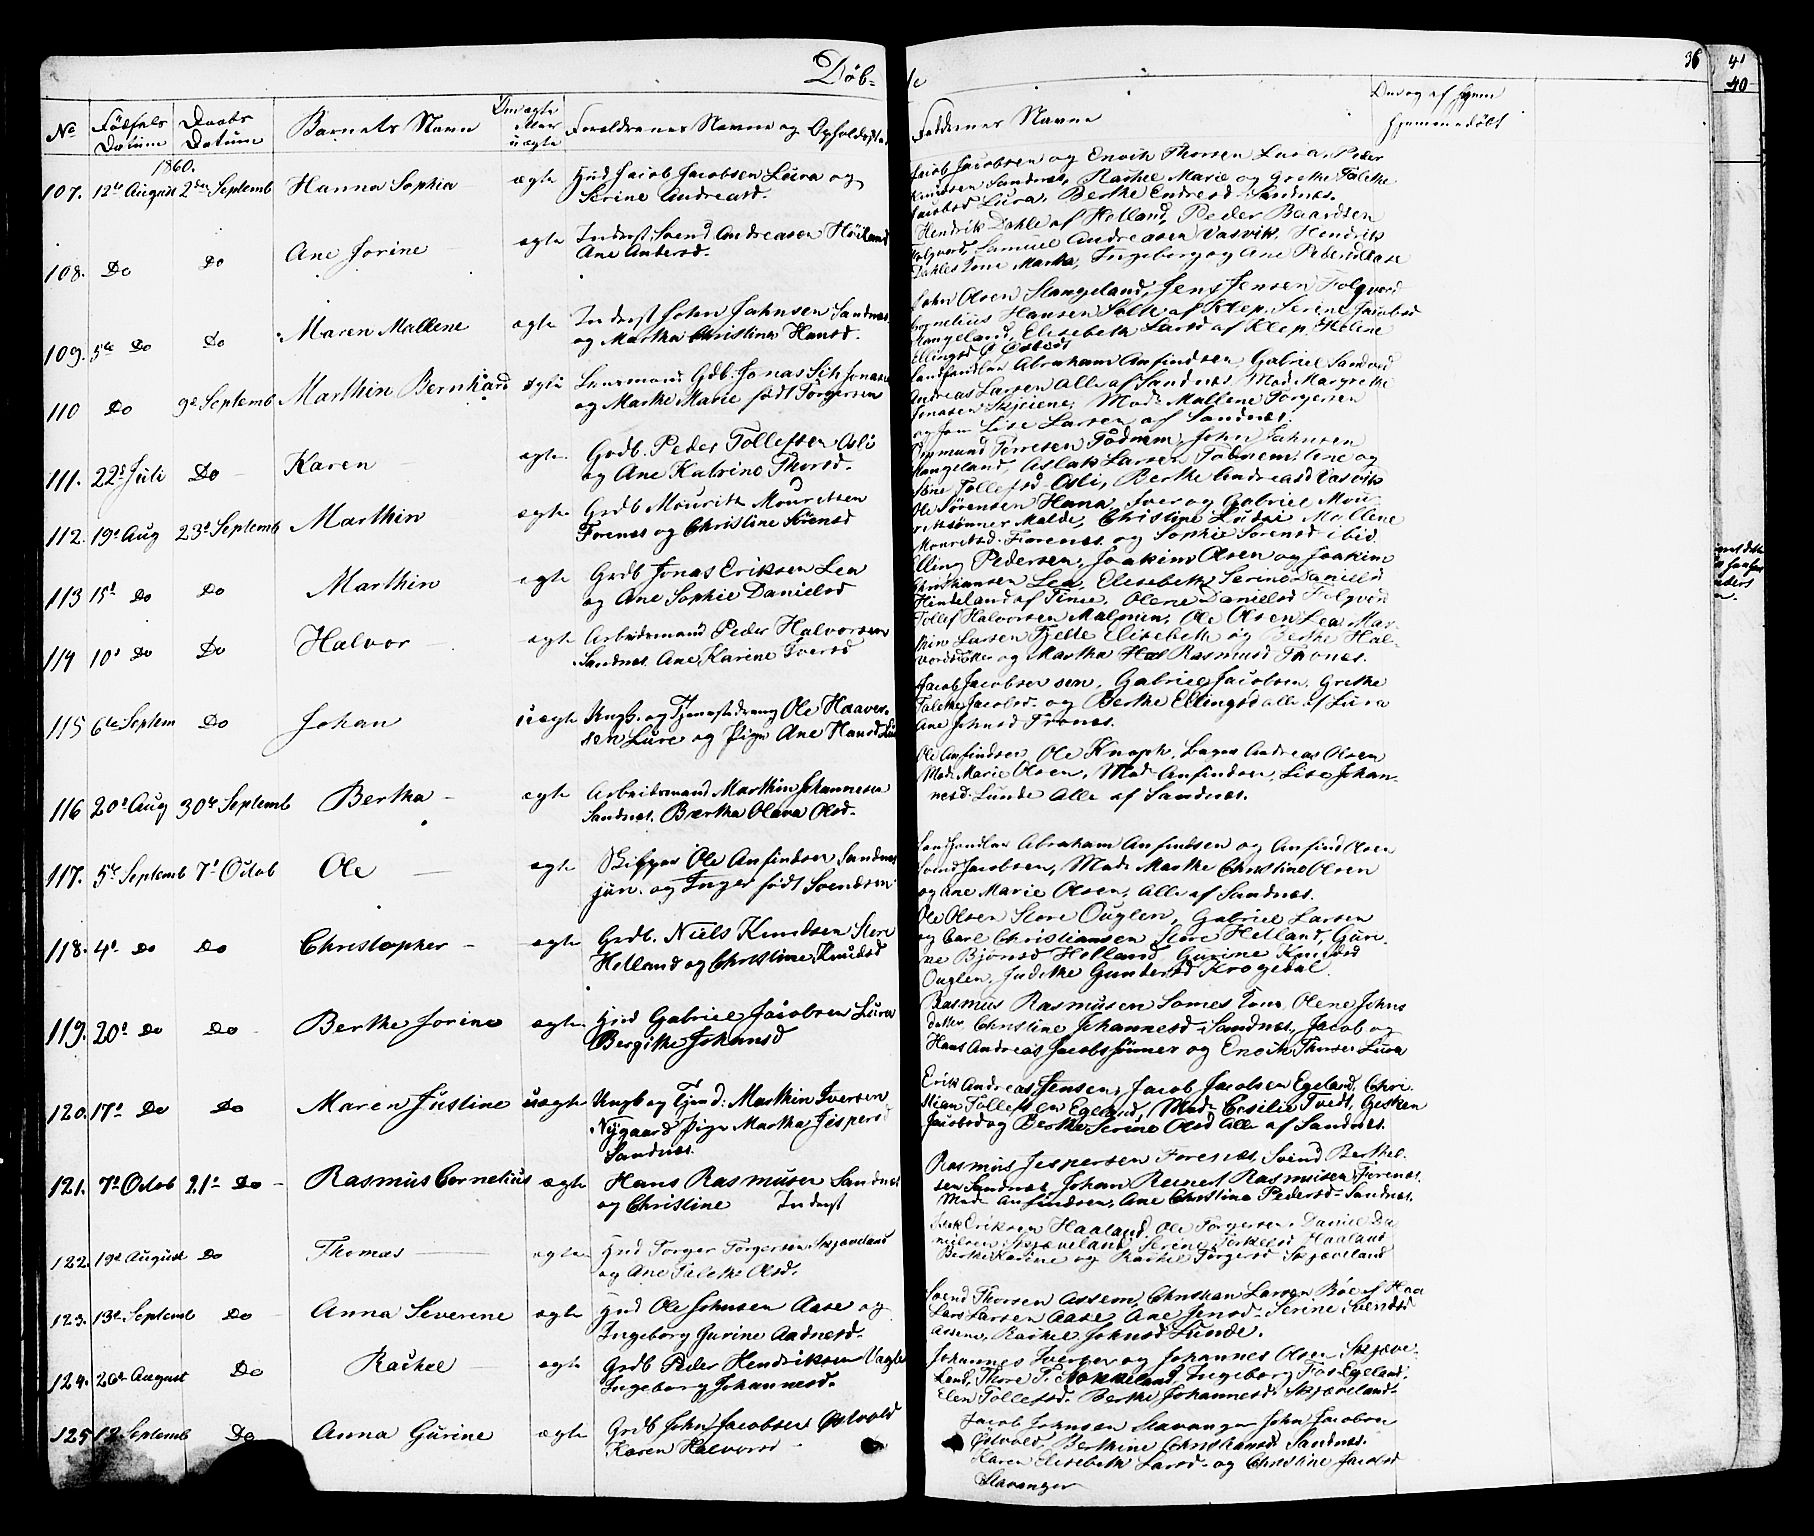 Døb-
te
36
41
40
No
Fødsels Datum
Daabs Datum
Barnets Navn
Om ægte eller uægte
Forældrenes Navne og Opholdssted
Faddernes Navne
1860.
107. 12te August 2den Septemb Hanna Sophia ægte Hmd Jacob Jacobsen Lura og
Serine Andreasd.
Jacob Jacobsen og Enoch Thorsen Lura, Peder
Knudsen Sandnæs, Rachel Marie og Grethe Talette
Jacobsd Lura, Berthe Endresd Sandnæs.
108. Do Do Ane Jorine ægte Inderst Svend Andreasen Høiland
Ane Andersd.
Hendrik Dahle af Holland, Peder Baardsen
Folqvord, Samuel Andreasen Vasvik, Hendrik
Dahles Kone Marta, Ingeborg og Ane Pedersd Aase
109. 5te Do Do Maren Mallene ægte Inderst John Jahnsen Sandnæs
og Martha Christine Hansd.
John Olsen Stangeland, Jens Jensen Folqvord
Cornelius Hansen Salte af Klep, Serene Jacobsd
Stangeland, Elisebeth Larsd af Klep, Helene
Ellingsd
110 Do 9de Septemb Marthin Bernhard ægte Lensmand Gdb. Jonas
og Marthe Marie født Torgersen
Landhandler Abraham Anfindsen, Gabriel
Andreas Larsen alle af Sandnæs, Mad. Margrethe
Jonasen Skjeiene, Mad. Mallene Torgersen
og Jom Lise Larsen af Sandnæs.
111. 22d Juli Do Karen ægte Grdb. Peder Tollefsen Osli
og Ane Katrine Thorsd.
Omund Torresen Tødnem, John Jahnsen
Stangeland, Aslak Larsen Tødnem, Ane og
Stine Tollefsd Osli, Berthe Andreasd Vasvik
112. 19de Aug 23d Septemb Marthin ægte Grdb Mouritz Mouritsen
Forenæs og Christine Sørensd
Ole Sørensen Hana, Iver og Gabriel Mou-
ritssønner Malde, Christine Mallene
Mouritsd. Forenæs og Sophie Sorensd ibid.
113 15d Do Do Marthin ægte Grdb Jonas Eriksen Lea
og Ane Sophie Danielsd
Elling Pedersen, Joakim Olsen og Joakim
Christiansen Lea, Elisebeth Serine Danielsd
Hindeland af Time, Olene Danielsd Folqvord
114 10d Do Do Halvor ægte Arbeidsmand Peder Halvorsen
Sandnæs. Ane Karine Iversd
Tollef Halvorsen Malmim, Ole Olsen Lea Mar-
thin Larsen Tjelte Elisebeth og Berthe Hal-
vorsdøtter og Martha Rasmusd Tronæs.
115 6te Septem Do Johan uægte Ungk. og Tjenestedreng Ole Haavor-
sen Lure og Pige Ane Hansd Lura
Jacob Jacobsen sen. Gabriel Jacobsen, Grethe
Talette Jacobsd. og Berthe Ellingsd alle af Lura
Ane Johnsd Tronæs.
116 20d Aug 30te Septemb Bertha ægte Arbeidsmand Marthin Johannesen
Sandnæs. Bertha Olava Olsd.
Ole Anfindsen, Ole Knaph, Bager Andreas Olsen
Mad. Marie Olsen, Mad. Anfindsen, Lise Johan-
nesd. Lunde Alle af Sandnæs.
117. 5te Septemb 7d Octob Ole ægte Skipper Ole Anfindsen Sandnæs
jun. og Inger født Svendsen
Landhandler Abraham Anfindsen og Anfind Olsen
Svend Jacobsen, Mad. Marthe Christine Olsen
og Ane Marie Olsen, Alle af Sandnæs.
118. 4d Do Do Christopher ægte Grdb. Niels Knudsen Store
Holland og Christine Knudsd
Ole Olsen Store Ouglen, Gabriel Larsen
og Carl Christiansen Store Helland, Guri-
ne Bjørnsd Holland, Gurine Knudsd
Ouglen, Judithe Gundersd Krogedal.
119. 20d Do Do Berthe Jorine ægte Hmd Gabriel Jacobsen Lura
Bergithe Johnsd
Rasmus Rasmusen Somes Kone Olene Johns-
datter, Christine Johannesd Sandnæs, Jacob og
Hans Andreas Jacobssønner og Enoch Thorsen Lura
120. 17d Do Do Maren Justine uægte Ungk og Tjend: Marthin Iversen
Nygaard Pige Martha Jespersd
Sandnæs.
Erik Andreas Jensen, Jacob Jacobsen Egeland, Chri-
stian Tollefsen Egeland, Mad. Cecilie Tvedt, Gesken
Jacobsd og Berthe Serine Olsd Alle af Sandnæs.
121. 7d Octob 21d Do Rasmus Cornelius ægte Hans Rasmusen Sandnæs
og Christine Inderst
Rasmus Jespersen Forenæs, Svend Berthel-
sen Sandnæs, Johan Reinert Rasmusen Forenæs.
Mad. Anfindsen, Ane Christine Pedersd. Sandnæs.
122. 19d August Do Thomas ægte Hmd Torger Torgersen Skjæveland
og Ane Talethe Olsd.
Eriksen Haaland, Ole Torgersen, Daniel Da-
nielsen Skjæveland, Serine Torkelsd Haaland
Berthe Karine og Rachel Torgersd Skjæveland
123. 13de Septemb Do Anna Severene ægte Hmd Ole Johnsen Aase og
Ingeborg Gurine Aadnesd.
Svend Thorsen Assem, Christian Larsen Bøe af Haa
Lars Larsen Aase, Ane Jensd. Serine Svendsd
Assem, Rachel Johnsd Lunde.
124. 26d August Do Rachel ægte Grdb Peder Hendriksen Vagle
Ingeborg Johannesd.
Johannes Iversen og Johannes Olsen Skjæve-
land, Thore T. Nokkeland, Ingeborg Egeland,
Elen Tollefsd. Berthe Johannesd. Skjæveland.
125 12 Septemb Do Anna Gurine ægte Grdb John Jacobsen Ostvold
Karen Halvorsd
Jacob Johnsen Stavanger John Jacobsen
Ostvold, Berthine Christiansd Sandnæs.
Karen Elisebeth Larsd. og Christine Jacobsd
Stavanger